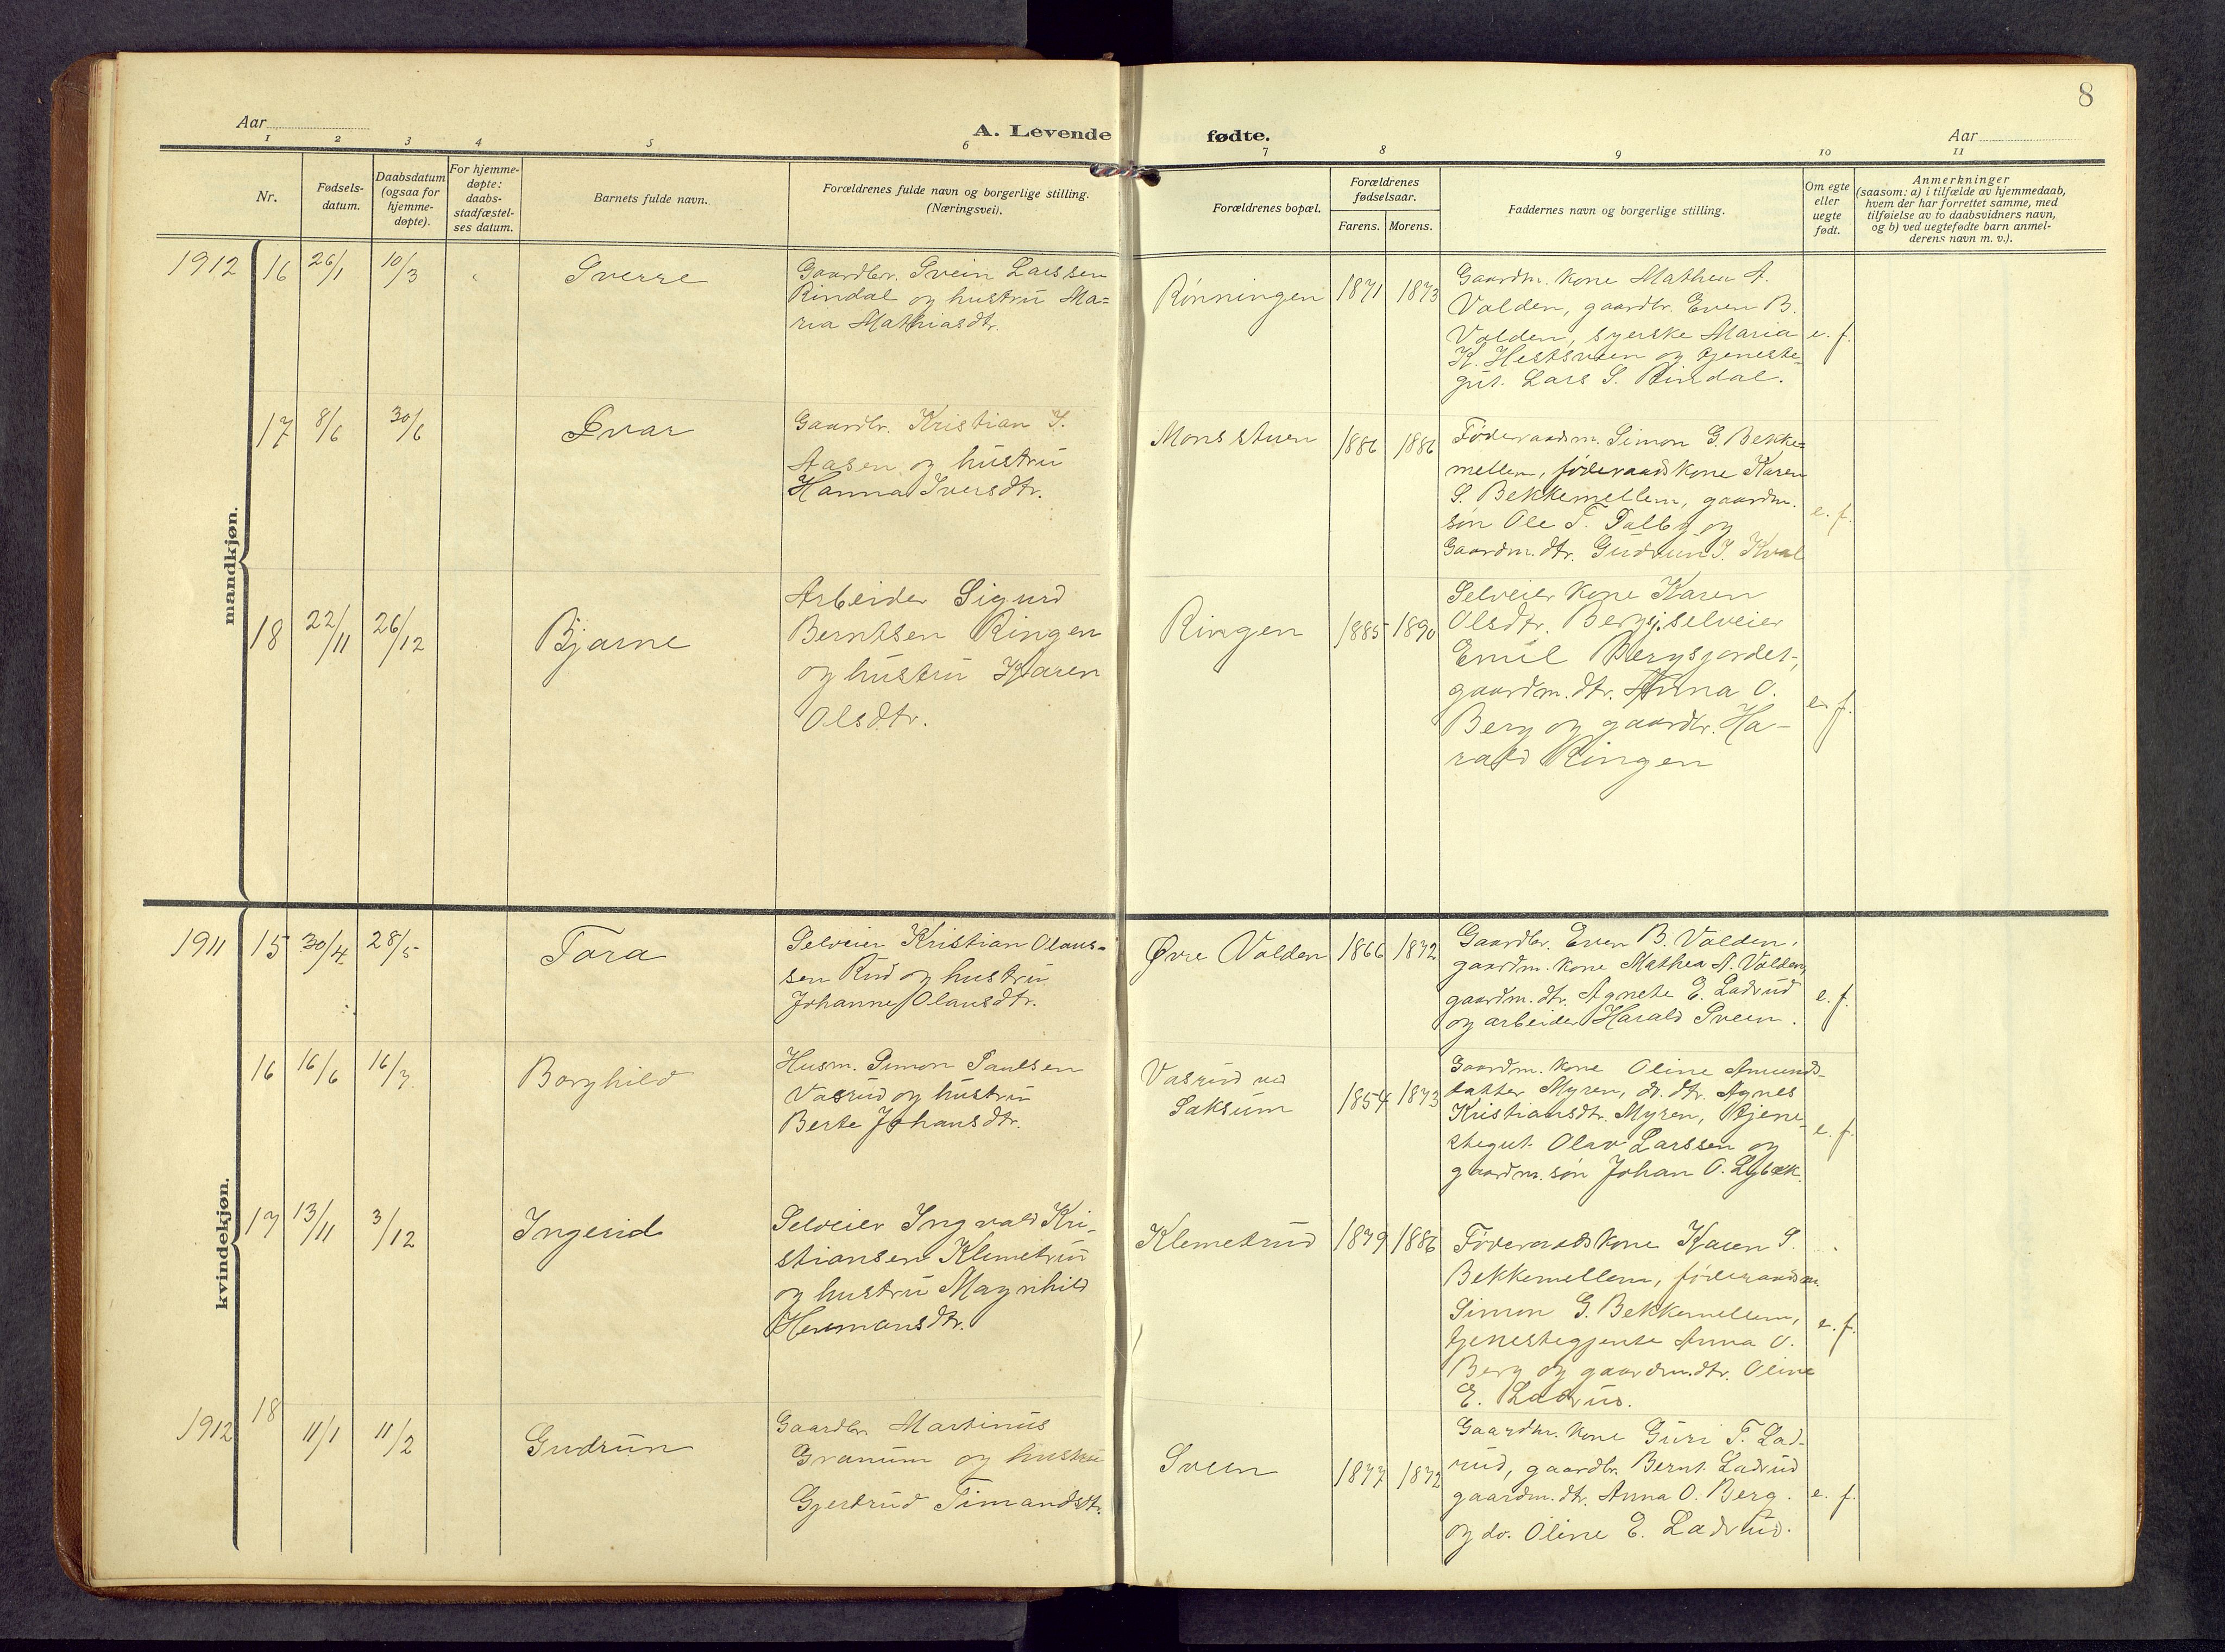 8
Aar
A. Levende fødte.
Aar
1 2 3 4 5 6 7 8 9 10 11
Nr.
Fødsels-
datum.
Daabsdatum
(ogsaa for
hjemme-
døpte).
For hjemme-
døpte:
daabs-
stadfæstel-
ses datum.
Barnets fulde navn.
Forældrenes fulde navn og borgerlige stilling.
(Næringsvei).
Forældrenes bopæl.
Forældrenes
fødselsaar.
Farens. Morens.
Faddernes navn og borgerlige stilling.
Om egte
eller
uegte
født.
Anmerkninger
(saasom: a) i tilfælde av hjemmedaab,
hvem der har forrettet samme, med
tilføielse av to daabsvidners navn,
og b) ved uegtefødte barn anmel-
derens navn m. v.).
mandkjøn.
1912 16 26/1 10/3 Sverre
Gaardbr. Svein Larssen
Rindal og hustru Ma=
ria Mathiasdtr.
Rønningen 1871 1873
Gaardm. kone Mathea A.
Volden, gaardbr. Even B.
Volden, syerske Maria
K. Hestsveen og tjeneste-
gut. Lars S. Rindal.
e. f.
17 8/6 30/6 Ivar
Gaardbr. Kristian I.
Aasen og hustru
Hanna Iversdtr.
Monsstuen 1886 1886
Føderaadsm. Simon G. Bekke=
mellem, føderaadskone Karen
S. Bekkemellem, gaardm.
søn Ole T. Dalby og
Gaardm. dtr. Gudrun I. Kval
e. f.
18 22/11 26/12 Bjarne
Arbeider Sigurd
Berntsen Ringen
og hustru Karen
Olsdtr.
Ringen 1885 1890
Selveier kone Karen
Olsdtr. Bergsj. selveier
Emil Bergsjordet,
gaardm. dtr. Anna O.
Berg og gaardbr. Ha-
rald Ringen
e. f.
kvindekjøn.
1911 15 30/4 28/5 Tora
Selveier Kristian Olaus-
sen Rud og hustru
Johanne Olausdtr.
Øvre Volden 1866 1872
Gaardbr. Even B. Volden,
gaardm. kone Mathea A. Volden,
gaardm. dtr. Agnete E. Ladrud
og arbeider Harald Sveen.
e. f.
16 16/6 16/7 Borghild
Husm. Simon Paulsen
Vasrud og hustru
Berte Johansdtr.
Vasrud ved
Saksum
1854 1873
Gaardm. kone Oline Amunds-
datter Myren, do. dtr. Agnes
Kristiansdtr. Myren, tjene-
stegut. Olav Larssen og
gaardm. søn Johan O. Lybæk.
e. f.
17 13/11 3/12 Ingerid
Selveier Ingvald Kri-
stiansen Klemetrud
og hustru Magnhild
Hermansdtr.
Klemetrud 1879 1886
Føderaadskone Karen S.
Bekkemellem, føderaadsm.
Simon G. Bekkemellem,
tjenestegjente Anna O.
Berg og gaardm. dtr. Oline
E. Ladrud.
e. f.
1912 18 11/1 11/2 Gudrun
Gaardbr. Martinus
Granum og hustru
Gjertrud Timandsdtr.
Sveen 1877 1872
Gaardm. kone Guri T. Lad-
rud, gaardbr. Bernt Ladrud
gaardm. dtr. Anna O. Berg.
og do. Oline E. Ladrud.
e. f.